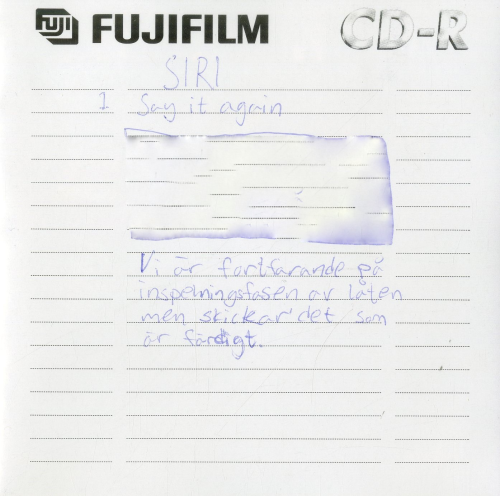 FUJI FUJIFILM CD-R
SIRI
1 Say it again
Vi är fortfarande på
inspelningsfasen av låten
men skickar det som
är färdigt.